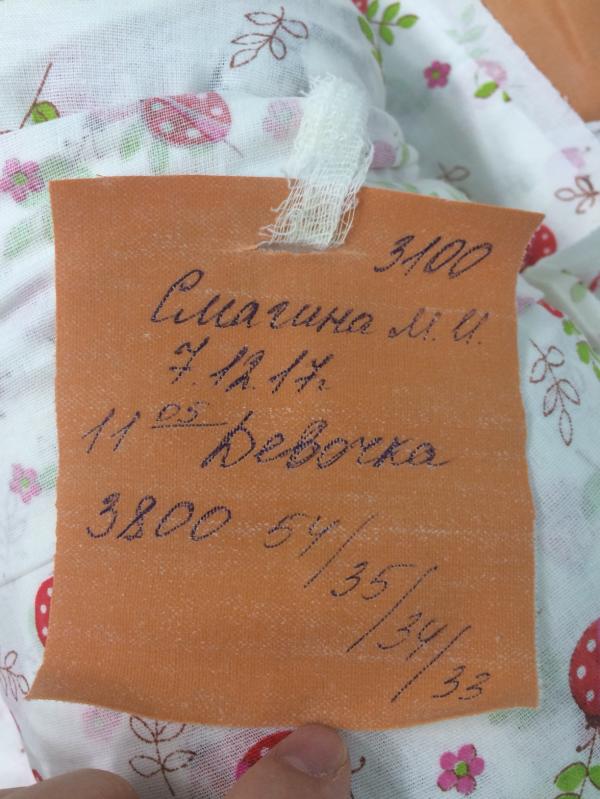 3100
Смагина М.И.
7.12.17г.
11 05 Девочка
3800 54/35/34/33